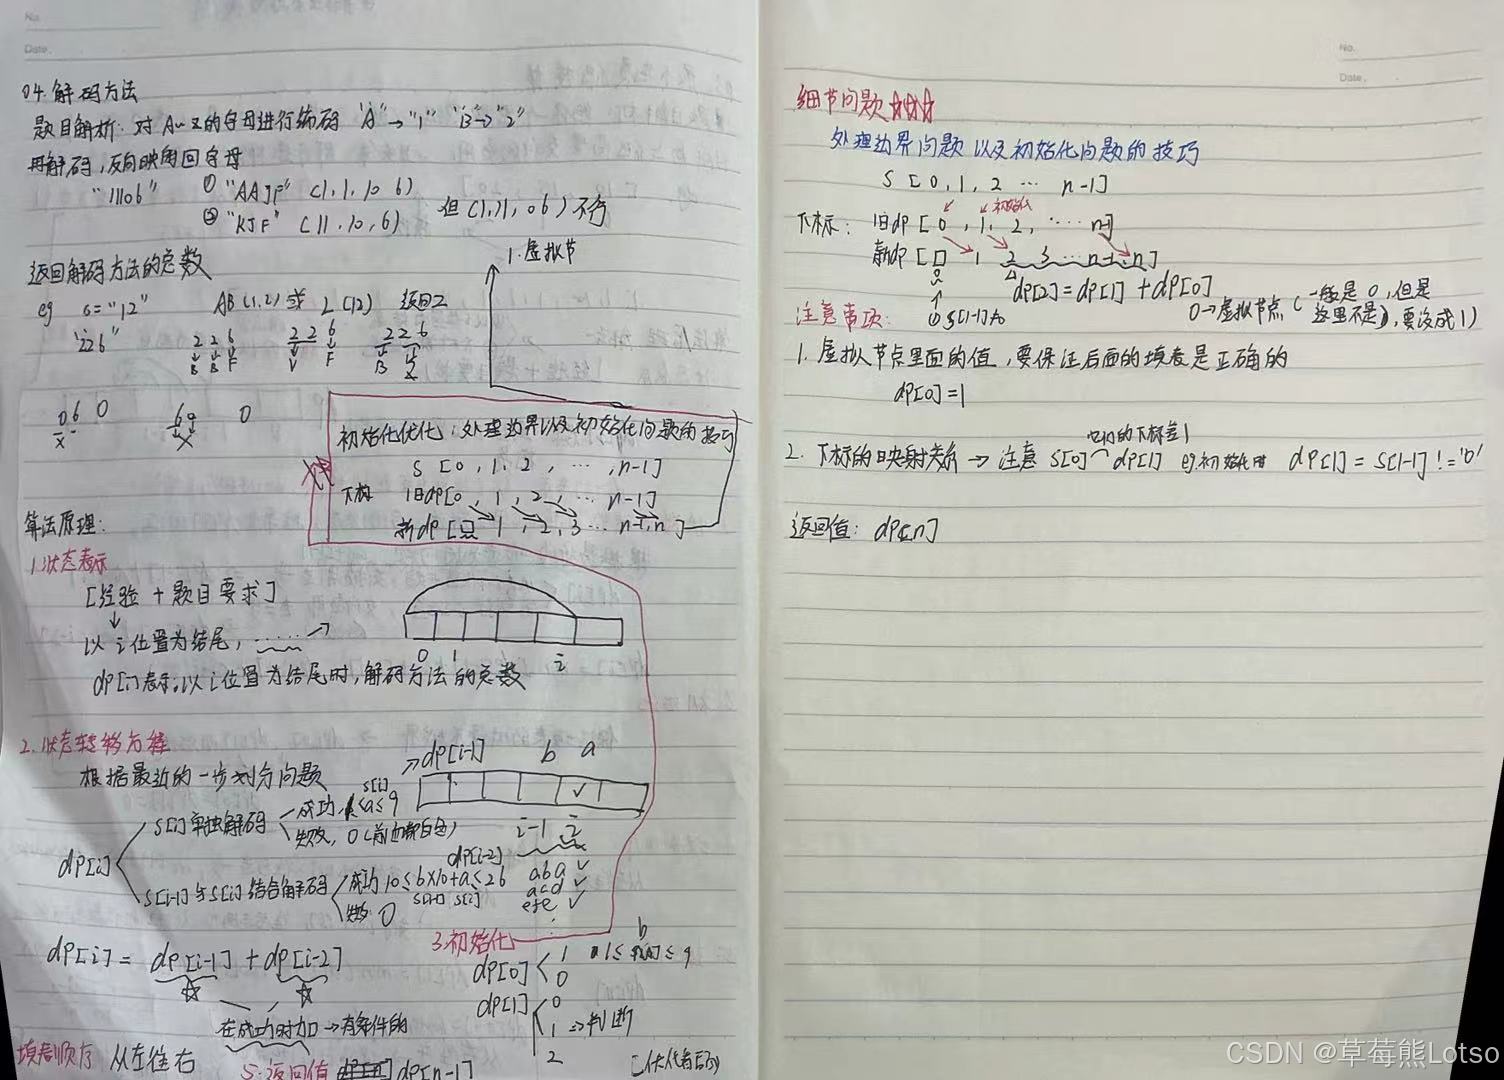 No.
Date.
04.解码方法
题目解析:对A~Z的字母进行编码 "A"→"1" "B"→"2"
再解码,反向映射回字母
"11106" ① "AAJF" (1,1,10 6)
② "KJF" (11,10,6) 但(1,11,06)不行
返回解码方法的总数
eg s="12" AB(1,2)或 L(12) 返回2
"226" 2 2 6 22 6 2 26
B B F V F B Z
06 0 60 0
X X
1.虚拟节
初始化优化:处理边界以及初始化问题的技巧
S [0, 1, 2, …, n-1]
下标 旧dp[0, 1, 2, … n-1]
新dp[□ 1, 2, 3… n-1, n]
算法原理:
1.状态表示
[经验 + 题目要求]
以 i 位置为结尾, ……
0 1 i
dp[i]表示:以i位置为结尾时,解码方法的总数
2.状态转移方程
根据最近的一步划分问题
→dp[i-1] b a
✓
i-1 i
dp[i]
s[i]单独解码
成功, 1≤a≤9
s[i]
失败, 0
s[i-1]与s[i]结合解码
成功 10≤b×10+a≤26
s[i-1] s[i]
失败 0
dp[i-2]
aba ✓
acd ✓
efe ✓
dp[i] = dp[i-1] + dp[i-2]
在成功时加→有条件的
3.初始化
dp[0] 1 0
dp[1] 0 1 2 ⇒判断
填表顺序 从左往右
5.返回值 dp[n-1]
No.
Date.
细节问题☆☆☆
处理边界问题以及初始化问题的技巧
S [0, 1, 2 … n-1]
初始化
下标: 旧dp [0, 1, 2, … n-1]
新dp [□ 1 2 3… n-1, n]
dp[2]=dp[1]+dp[0]
0→虚拟节点(一般是0,但是这里不是),要设成1)
注意事项:
1.虚拟节点里面的值,要保证后面的填表是正确的
dp[0]=1
它们的下标差1
2.下标的映射关系→注意 S[0] dp[1] eg.初始化时 dp[1]=S[1-1]!='0'
返回值: dp[n]
CSDN @草莓熊Lotso